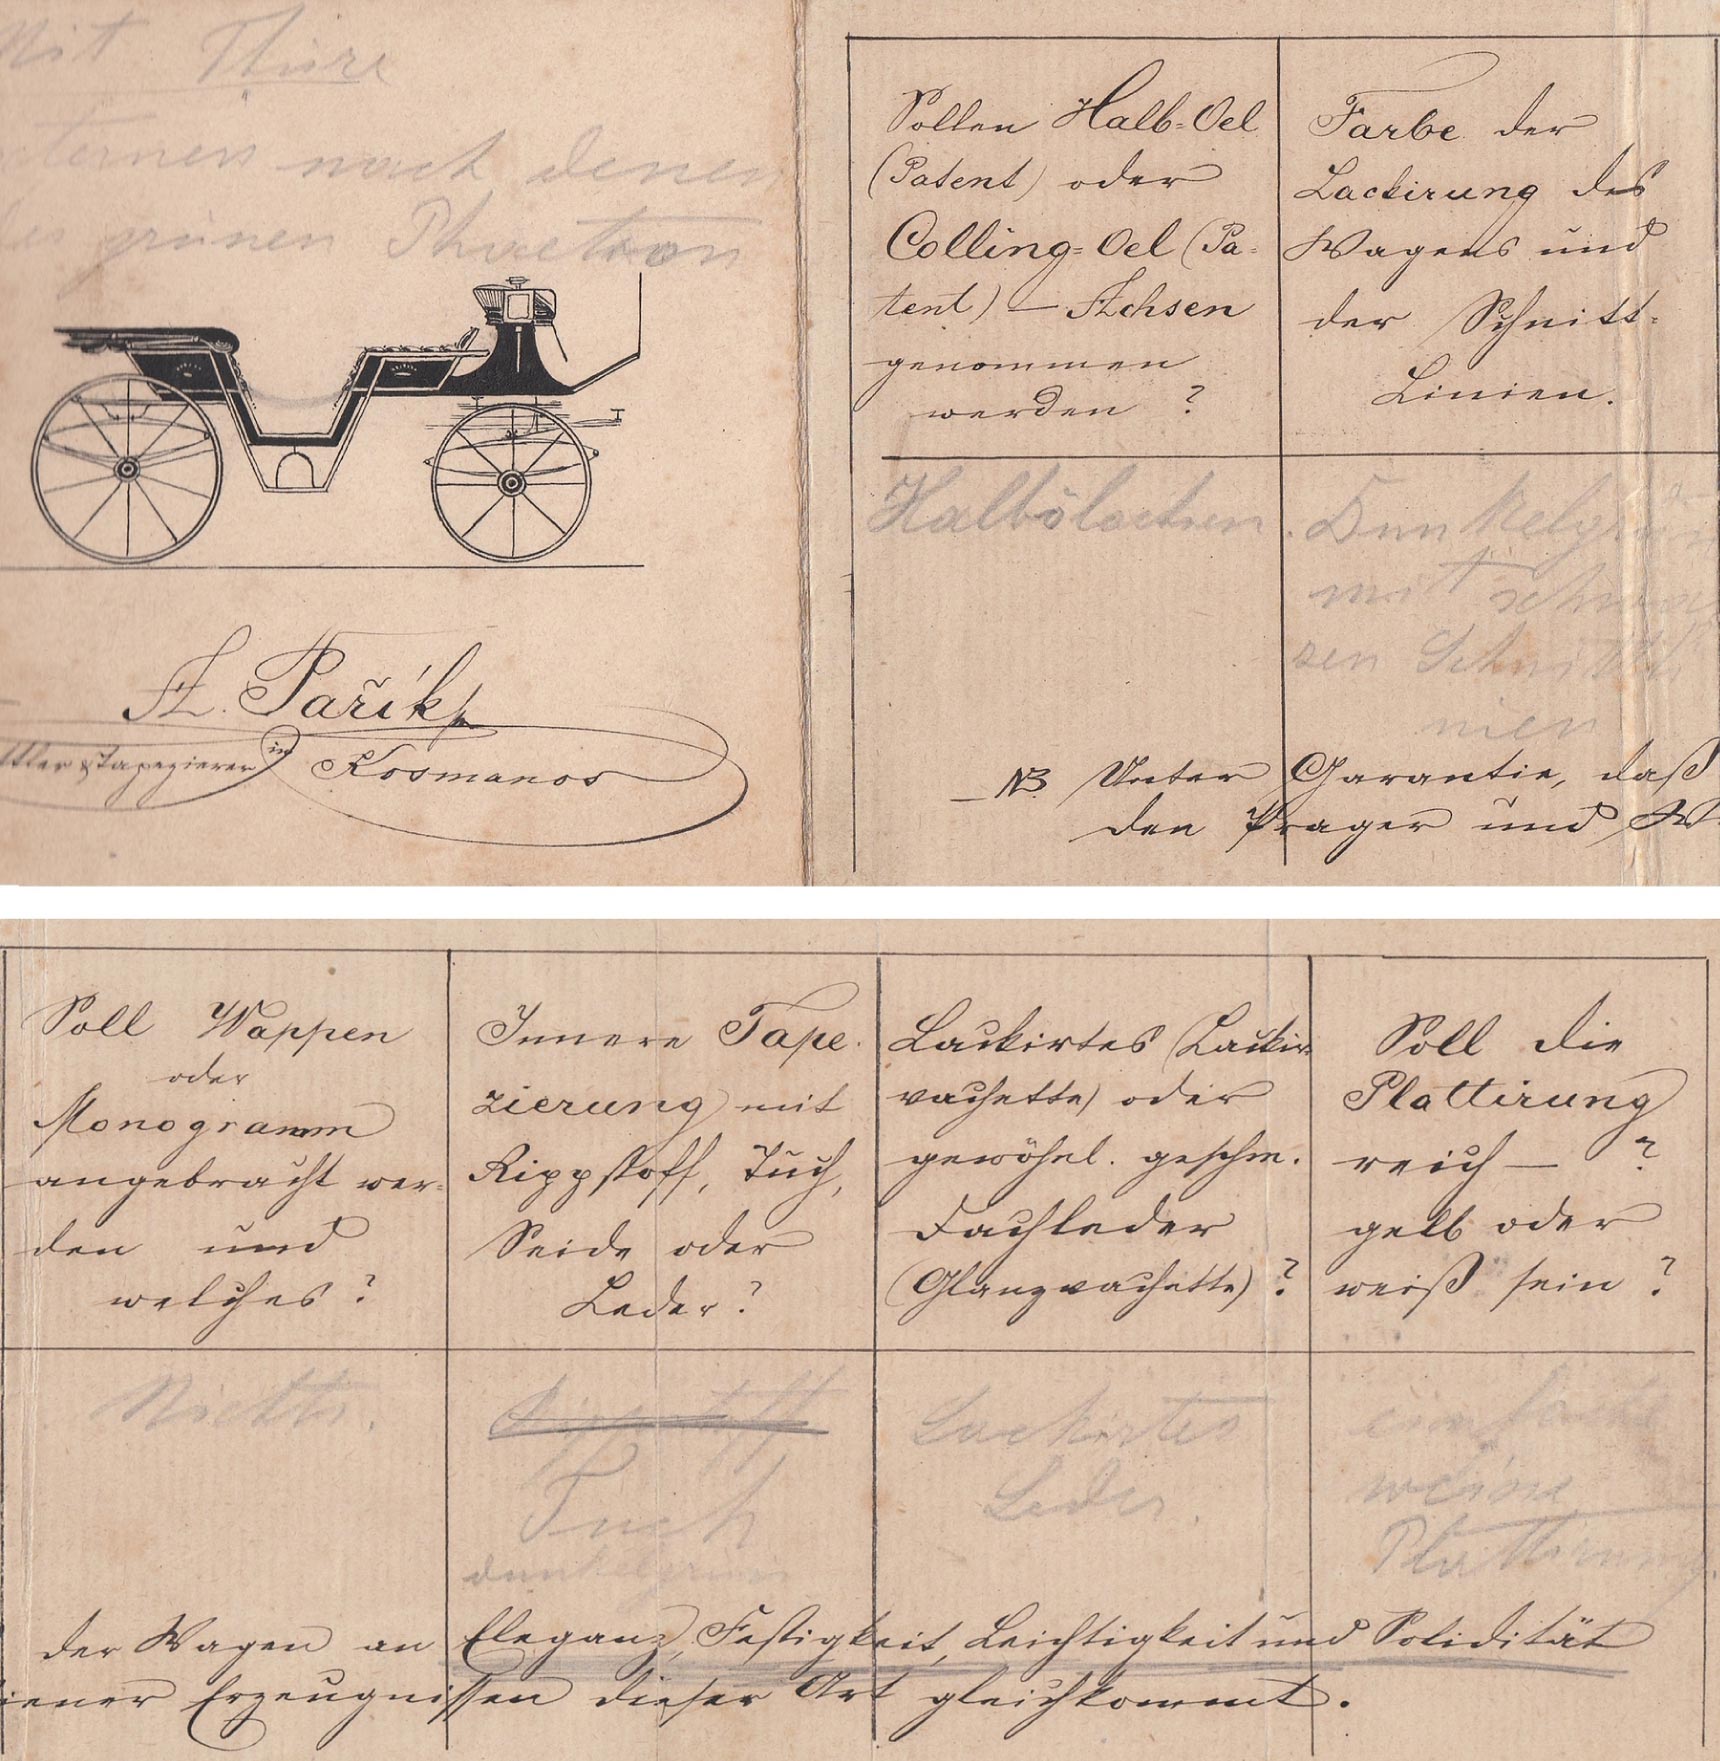 Mit Thüre
nach denen
des grünen Phaeton
A. Pařík
& Tapezierer in Kosmanos
Sollen Halb-Oel
(Patent) oder
Colling-Oel (Pa-
tent) — Achsen
genommen
werden ?
Halbölachsen.
Farbe der
Lackirung des
Wagens und
der Schnitt-
Linien.
Dunkelgrün
mit schwar
zen Schnittli
nien
NB Unter Garantie, daß
den Prager und W
Soll Wappen
oder
Monogramm
angebracht wer-
den und
welches ?
Nichts.
Innere Tape-
zierung mit
Rippstoff, Tuch,
Seide oder
Leder ?
Rippstoff
Tuch
dunkelgrün
Lackirtes (Lackir-
vachette) oder
gewöhnl. geschm.
Dachleder
(Glanzvachette) ?
Lackirtes
Leder.
Soll die
Plattirung
reich — ?
gelb oder
weiß sein ?
einfache
weisse
Plattirung
der Wagen an Eleganz, Festigkeit, Leichtigkeit und Solidität
iener Erzeugnissen dieser Art gleichkommt.